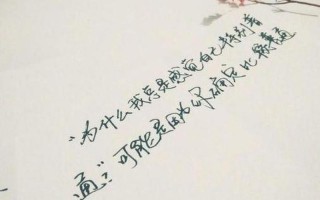 “为什么我总是感觉自己特别普
通？”可能是因为你确实比较普通